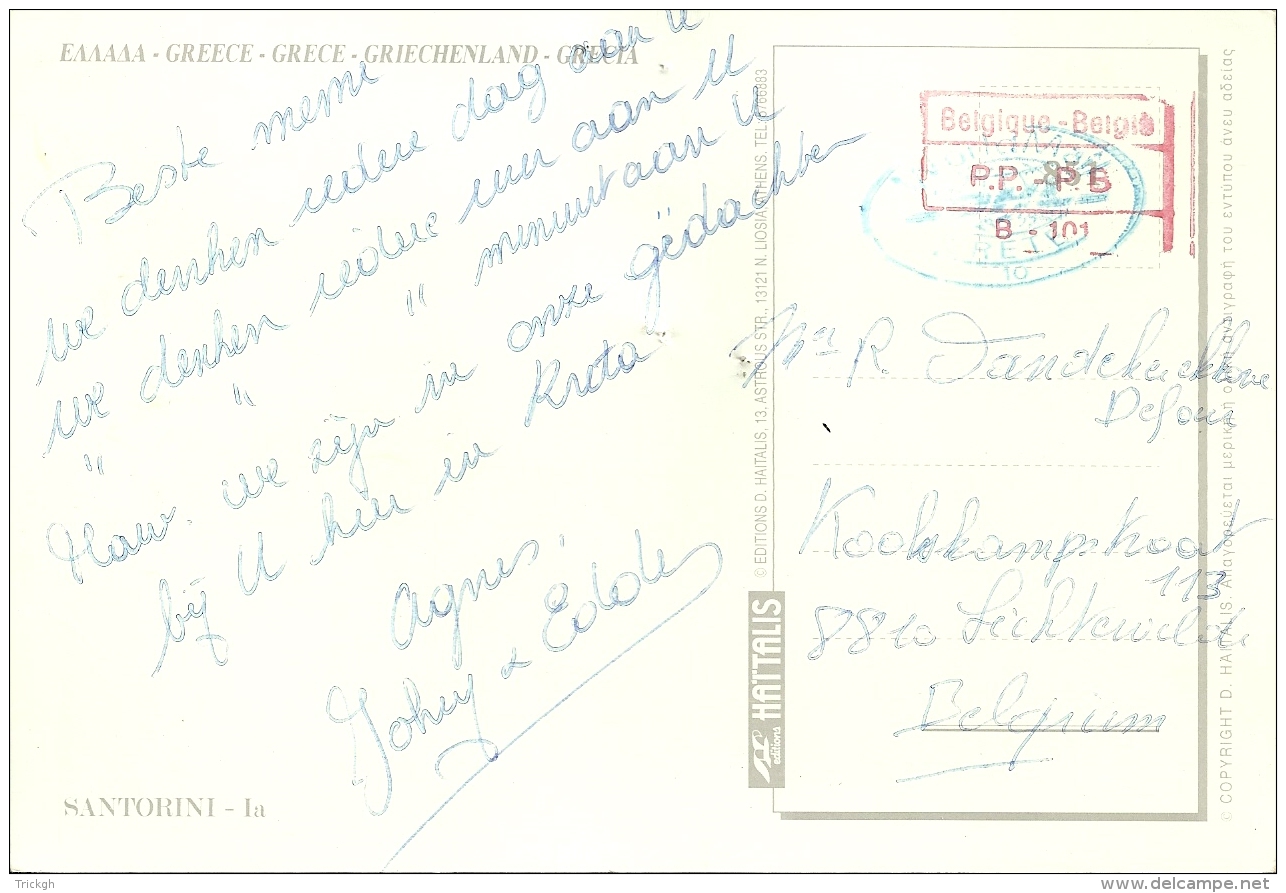 ΕΛΛΑΔΑ - GREECE - GRECE - GRIECHENLAND - GRECIA
Beste meme
we denken iedere dag aan u
we denken iedere uur aan u
" " " minuut aan u
Maw. we zijn in onze gedachten
bij U hier in Kreta
Agnes,
Johny & Eddy
SANTORINI - Ia
© EDITIONS D. HAITALIS, 13. ASTROUS STR., 13121 N. LIOSIA ATHENS. TEL. 5766883
HAÏTALIS
editions
Belgique - België
P.P. - P.B
B - 101
851
10
R. Vandekerckhove
Defour
Koolskampstraat
113
8810 Lichtervelde
Belgium
© COPYRIGHT D. HAITALIS. Απαγορεύεται μερική ή όλη αντιγραφή του εντύπου άνευ αδείας
Trickgh
www.delcampe.net